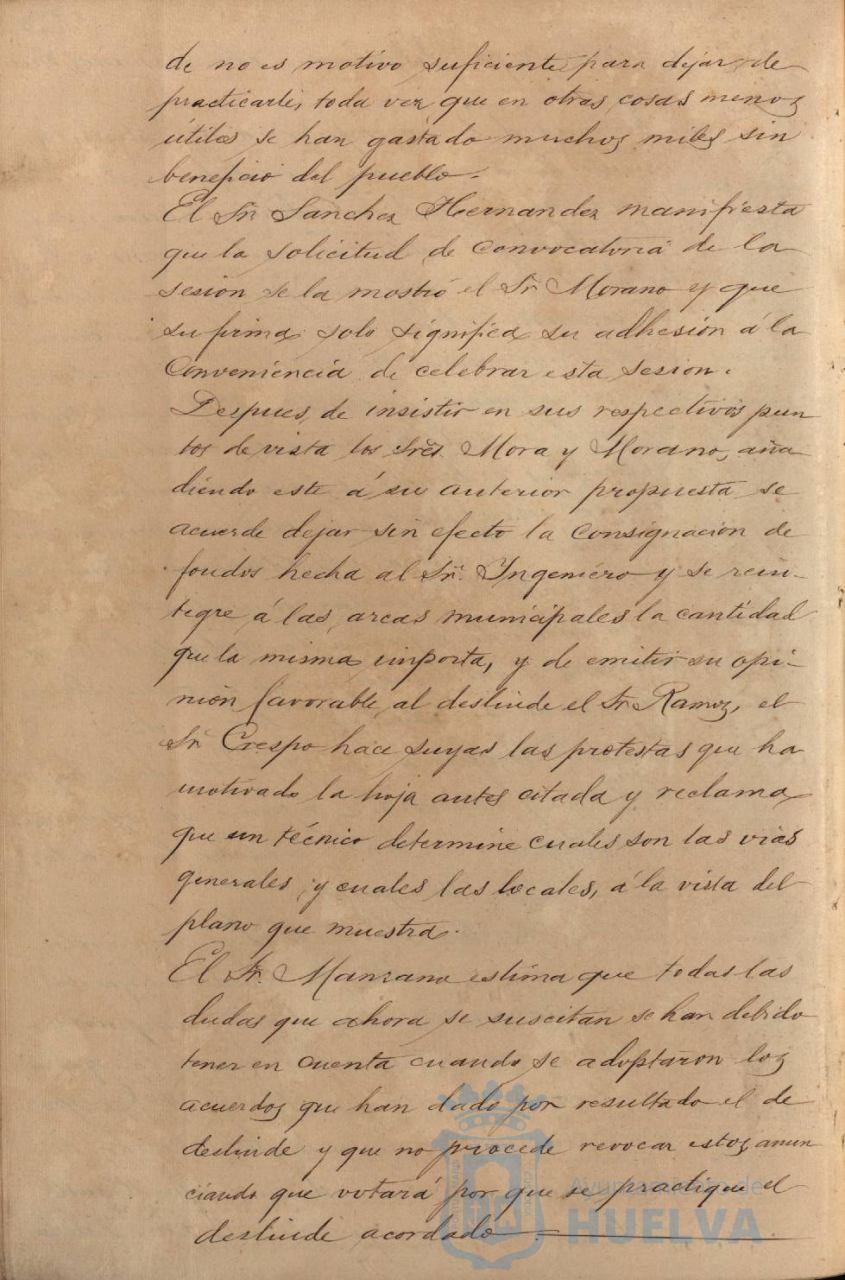 de no es motivo suficiente para dejar de
practicarle, toda vez que en otras cosas menos
útiles se han gastado muchos miles sin
beneficio del pueblo.
El Sr. Sanchez Hernandez manifiesta
que la solicitud de convocatoria de la
sesion se la mostró el Sr. Morano y que
su firma solo significa su adhesión á la
Conveniencia de celebrar esta sesion.
Despues de insistir en sus respectivos pun
tos de vista los Sres. Mora y Morano, aña
diendo este á su anterior propuesta se
acuerde dejar sin efecto la consignacion de
fondos hecha al Sr. Ingeniero y se rein-
tegre á las arcas municipales la cantidad
que la misma importa, y de emitir su opi-
nión favorable al deslinde el Sr. Ramos, el
Sr. Crespo hace suyas las protestas que ha
motivado la hoja antes citada y reclama
que un técnico determine cuales son las vias
generales y cuales las locales, á la vista del
plano que muestra.
El Sr. Manzano estima que todas las
dudas que ahora se suscitan se han debido
tener en cuenta cuando se adoptaron los
acuerdos que han dado por resultado el de
deslinde y que no procede revocar estos anun
ciando que votará por que se practique el
deslinde acordado
Ayuntamiento de
HUELVA